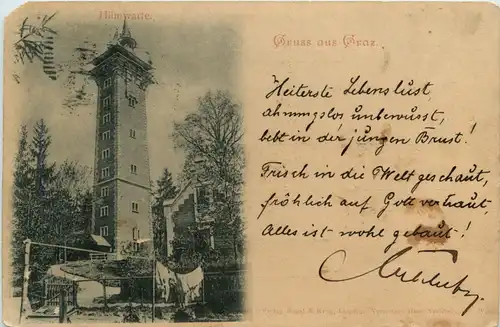 Hilmwarte.
Gruss aus Graz.
Heiterste Lebenslust,
ahnungslos unbewusst,
lebt in der jungen Brust!
Frisch in die Welt geschaut,
fröhlich auf Gott vertraut,
Alles ist wohl gebaut!